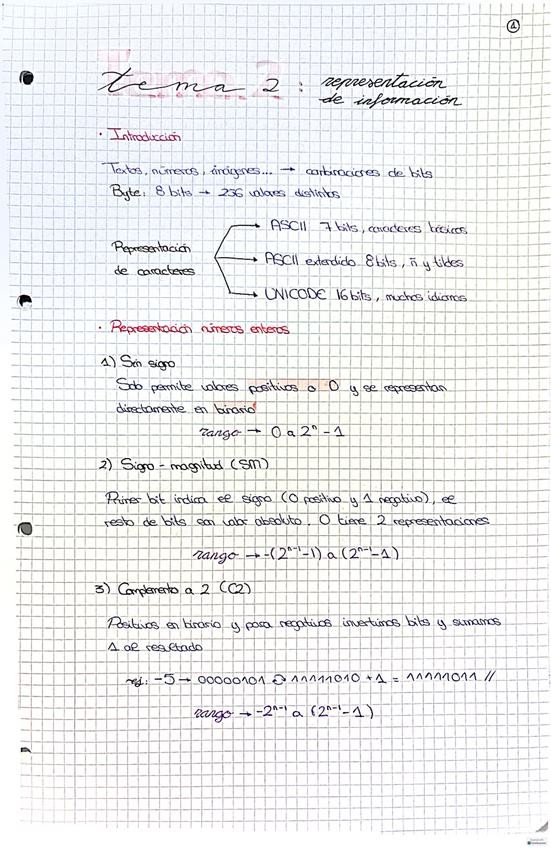 1
tema 2: representación
de información
· Introducción
Textos, números, imágenes... → combinaciones de bits
Byte: 8 bits → 256 valores distintos
Representación
de caracteres
→ ASCII 7 bits, caracteres básicos
→ ASCII extendido 8 bits, ñ y tildes
→ UNICODE 16 bits, muchos idiomas
· Representación números enteros
1) Sin signo
Solo permite valores positivos o 0 y se representan
directamente en binario
rango → 0 a 2ⁿ - 1
2) Signo - magnitud (SM)
Primer bit indica el signo (0 positivo y 1 negativo), el
resto de bits son valor absoluto. 0 tiene 2 representaciones
rango → -(2ⁿ⁻¹-1) a (2ⁿ⁻¹-1)
3) Complemento a 2 (C2)
Positivos en binario y para negativos invertimos bits y sumamos
1 al resultado
ej: -5 → 00000101 11111010 + 1 = 11111011 //
rango → -2ⁿ⁻¹ a (2ⁿ⁻¹-1)